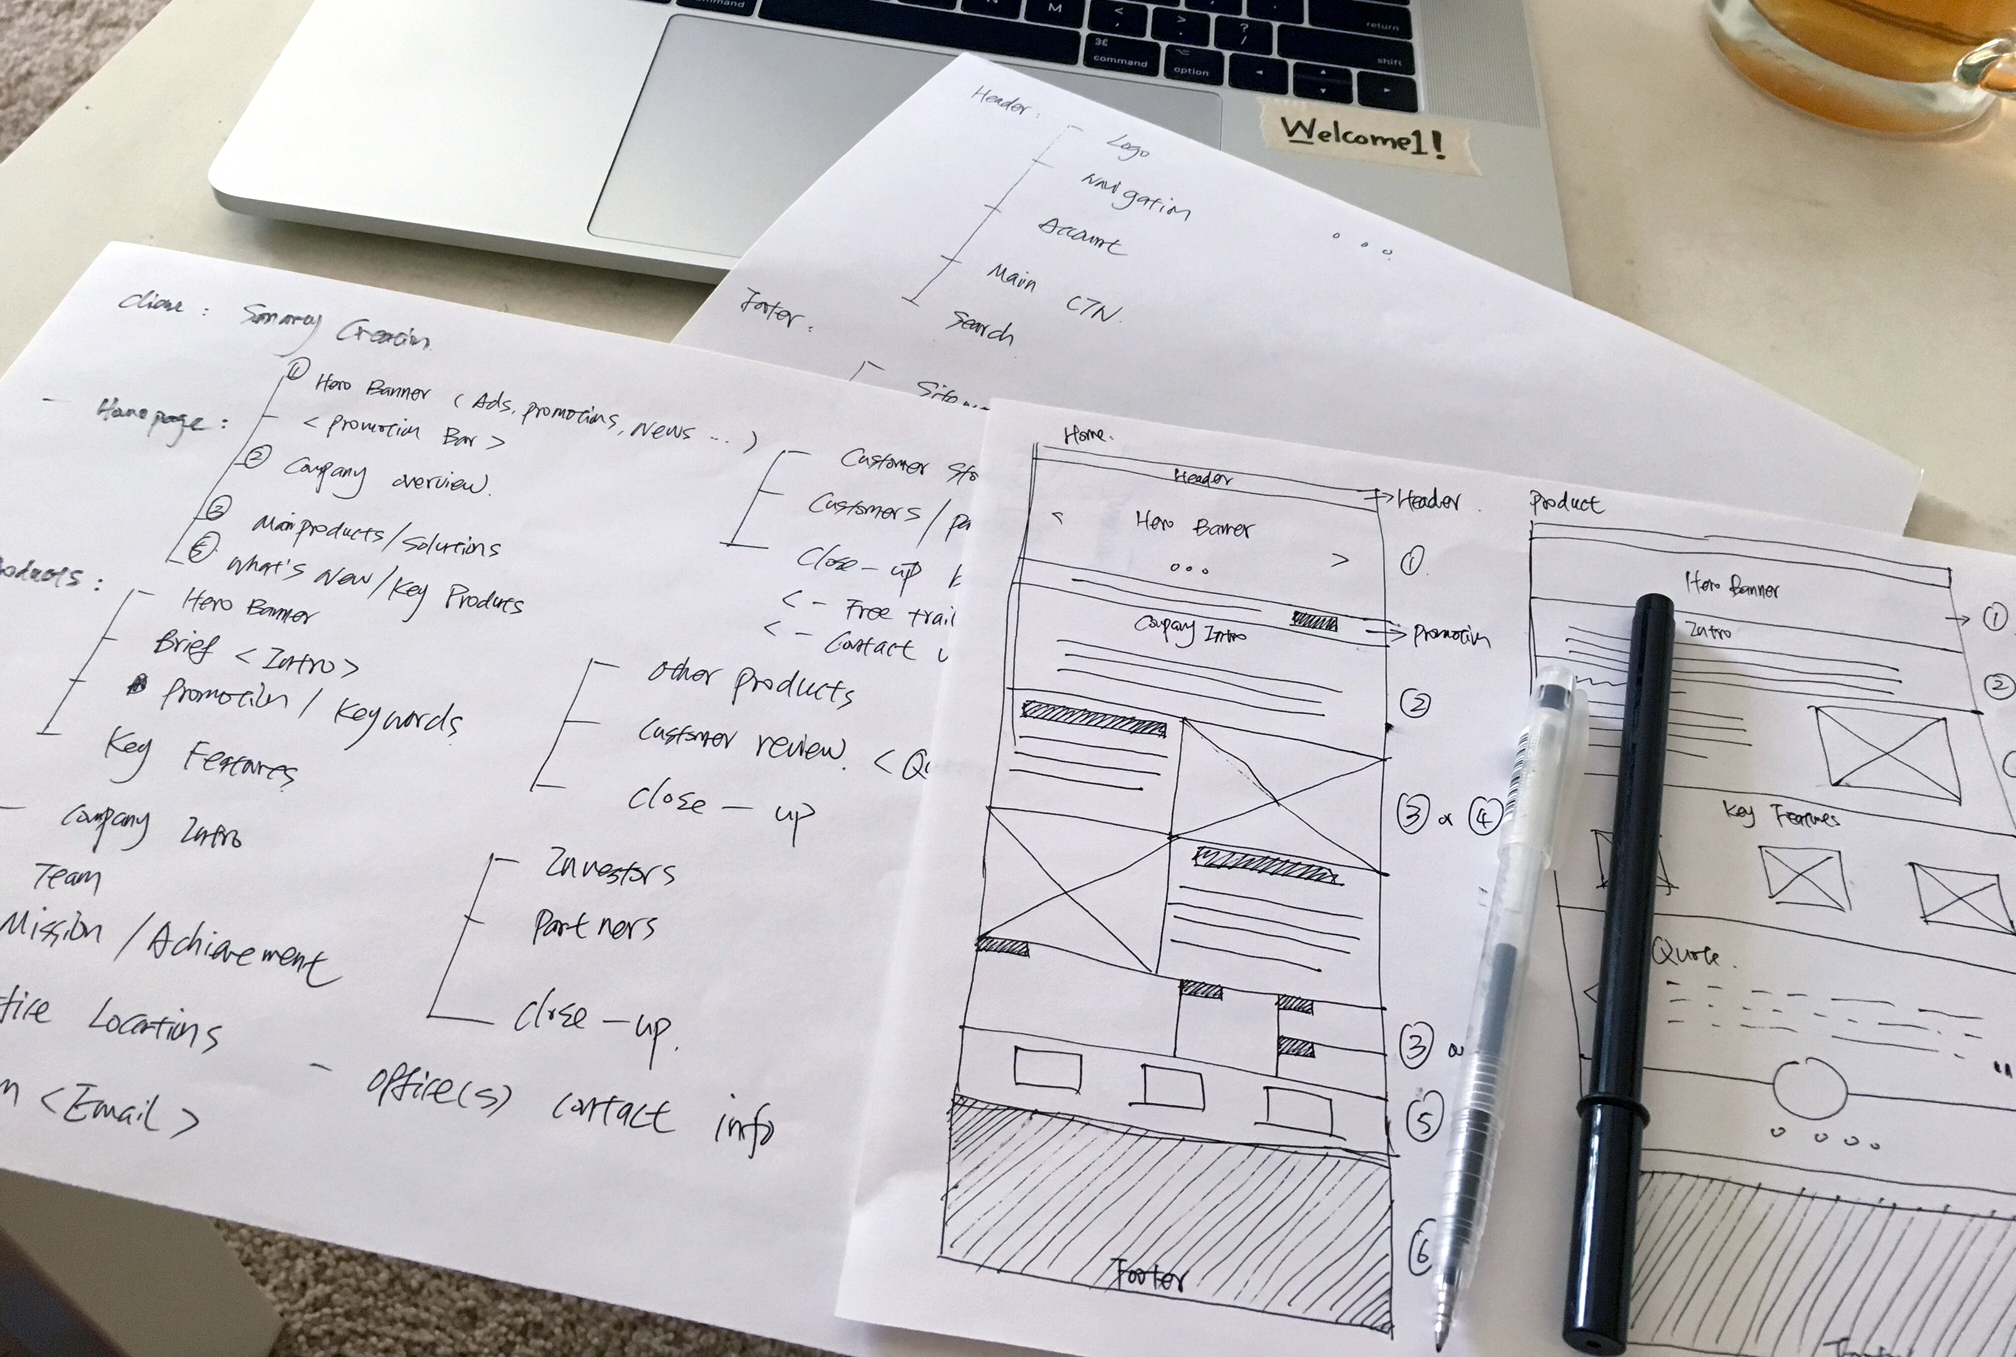 command
N
M
<
,
>
.
?
/
return
⌘
command
⌥
option
shift
Welcome1!
Header:
Logo
Navigation
Account
Main CTN.
Search
Footer:
Client:
Homepage:
① Hero Banner (Ads, promotions, News ...)
<promotion Bar>
② Company overview.
Main products/Solutions
⑤ What's New/Key Products
Customer
Customers/
Close-up
<- Free trail
<- Contact
Hero Banner
Brief <Intro>
Promotion/Keywords
Key Features
Other products
Customer review. <
close-up
- Company Intro
Team
Mission/Achievement
Locations
<Email>
Investors
Partners
Close-up.
- Office(s) contact info
Home.
Header
→Header.
Hero Banner
<
>
①
→promotion
Company Intro
②
③ or ④
③ or
⑤
⑥
Footer
Product
Hero Banner
→①
Intro
②
Key Features
Quote.
"